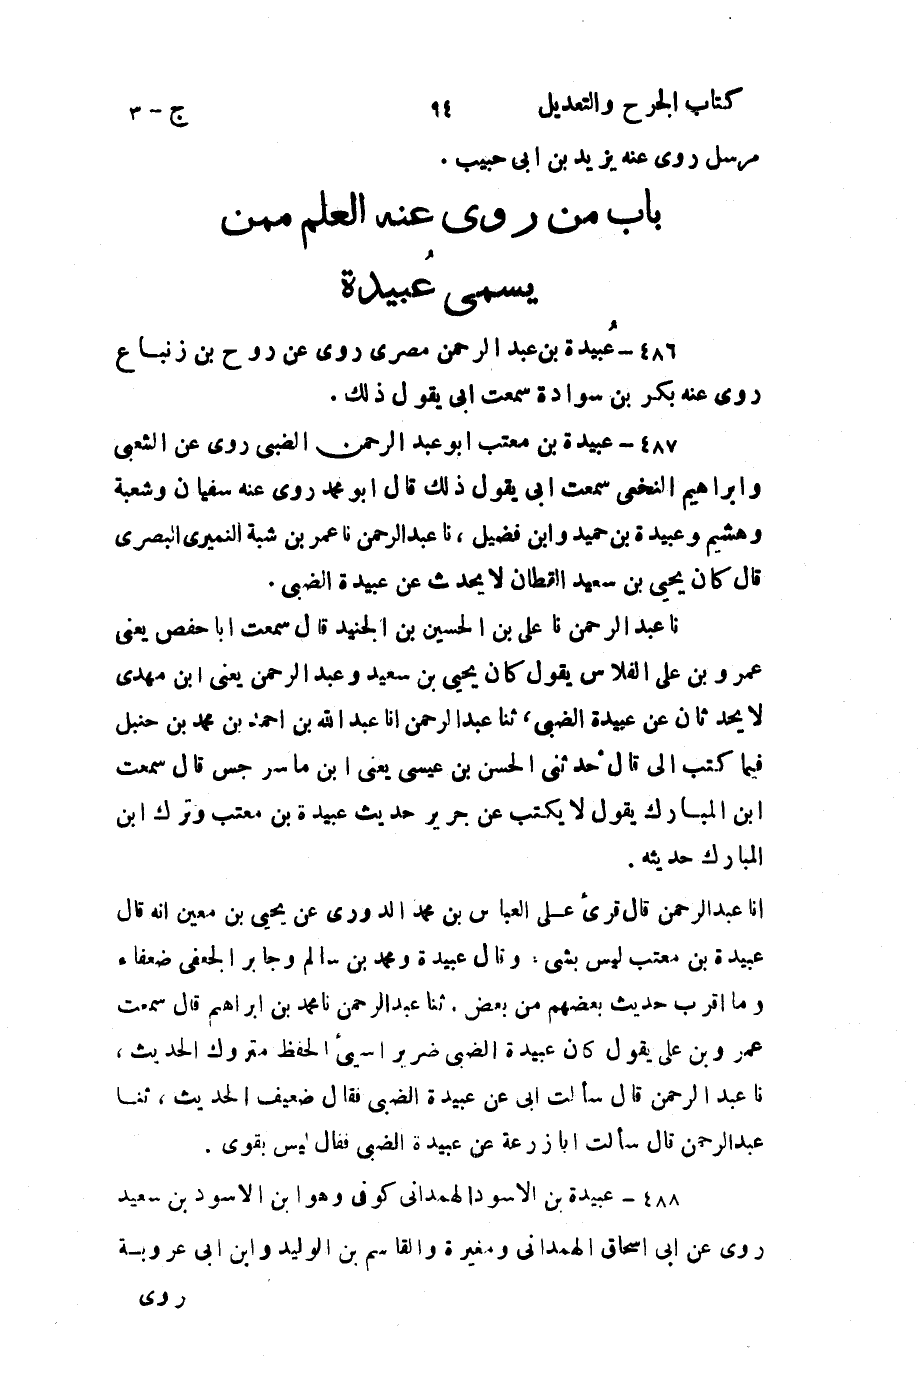 كتاب الجرح والتعديل ٩٤ ج - ٣
مرسل روى عنه يزيد بن ابى حبيب .
باب من روى عنه العلم ممن
يسمى عُبيدة
٤٨٦ - عُبيدة بن عبد الرحمن مصرى روى عن روح بن زنباع
روى عنه بكر بن سوادة سمعت ابى يقول ذلك .
٤٨٧ - عبيدة بن معتب ابو عبد الرحمن الضبى روى عن الشعبى
وابراهيم النخعى سمعت ابى يقول ذلك قال ابو محمد روى عنه سفيان وشعبة
وهشيم وعبيدة بن حميد وابن فضيل ، نا عبدالرحمن نا عمر بن شبة النميرى البصرى
قال كان يحيى بن سعيد القطان لا يحدث عن عبيدة الضبى .
نا عبد الرحمن نا على بن الحسين بن الجنيد قال سمعت ابا حفص يعنى
عمرو بن على الفلاس يقول كان يحيى بن سعيد وعبد الرحمن يعنى ابن مهدى
لا يحدثان عن عبيدة الضبى، ثنا عبدالرحمن انا عبد الله بن احمد بن محمد بن حنبل
فيما كتب الى قال حدثنى الحسن بن عيسى يعنى ابن ماسرجس قال سمعت
ابن المبارك يقول لا يكتب عن جرير حديث عبيدة بن معتب وترك ابن
المبارك حديثه .
انا عبدالرحمن قال قرئ على العباس بن محمد الدورى عن يحيى بن معين انه قال
عبيدة بن معتب ليس بشى ، وقال عبيدة ومحمد بن سالم وجابر الجعفى ضعفاء
وما اقرب حديث بعضهم من بعض . ثنا عبدالرحمن نا محمد بن ابراهيم قال سمعت
عمرو بن على يقول كان عبيدة الضبى ضريرا سيئ الحفظ متروك الحديث ،
نا عبد الرحمن قال سألت ابى عن عبيدة الضبى فقال ضعيف الحديث ، ثنا
عبدالرحمن قال سألت ابا زرعة عن عبيدة الضبى فقال ليس بقوى .
٤٨٨ - عبيدة بن الاسود الهمدانى كوفى وهو ابن الاسود بن سعيد
روى عن ابى اسحاق الهمدانى ومغيرة والقاسم بن الوليد وابن ابى عروبة
روى